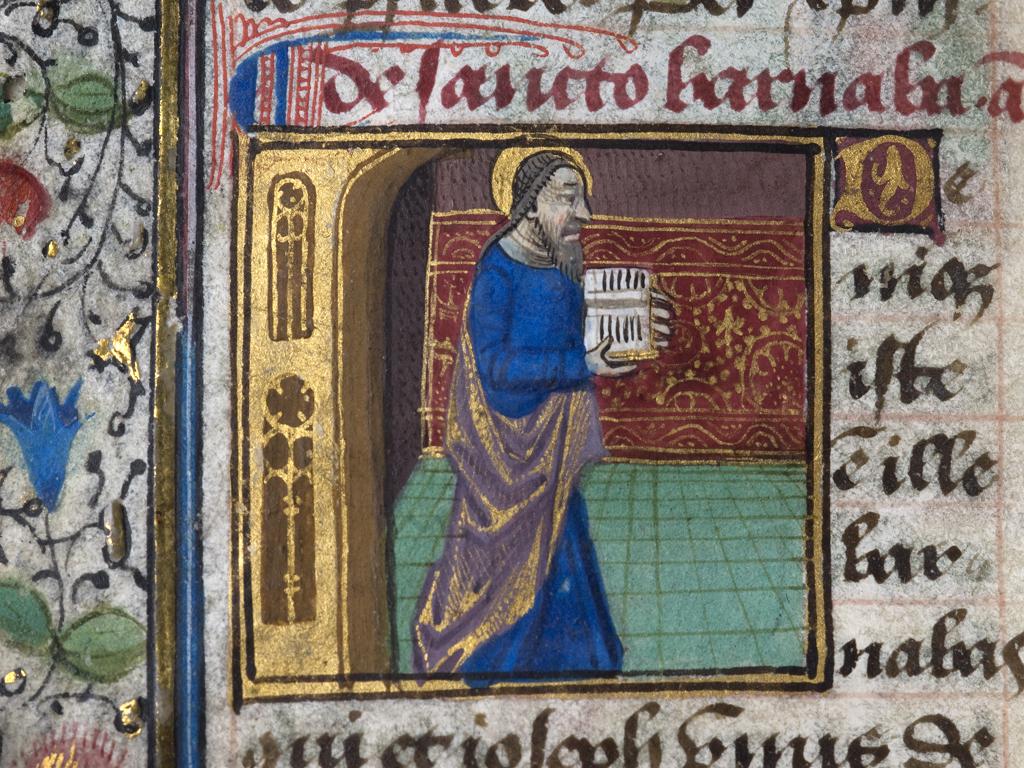 de sancto barnaba. a
De
niqȝ
iste
ē ille
bar
nabas
qui et ioseph vnus de